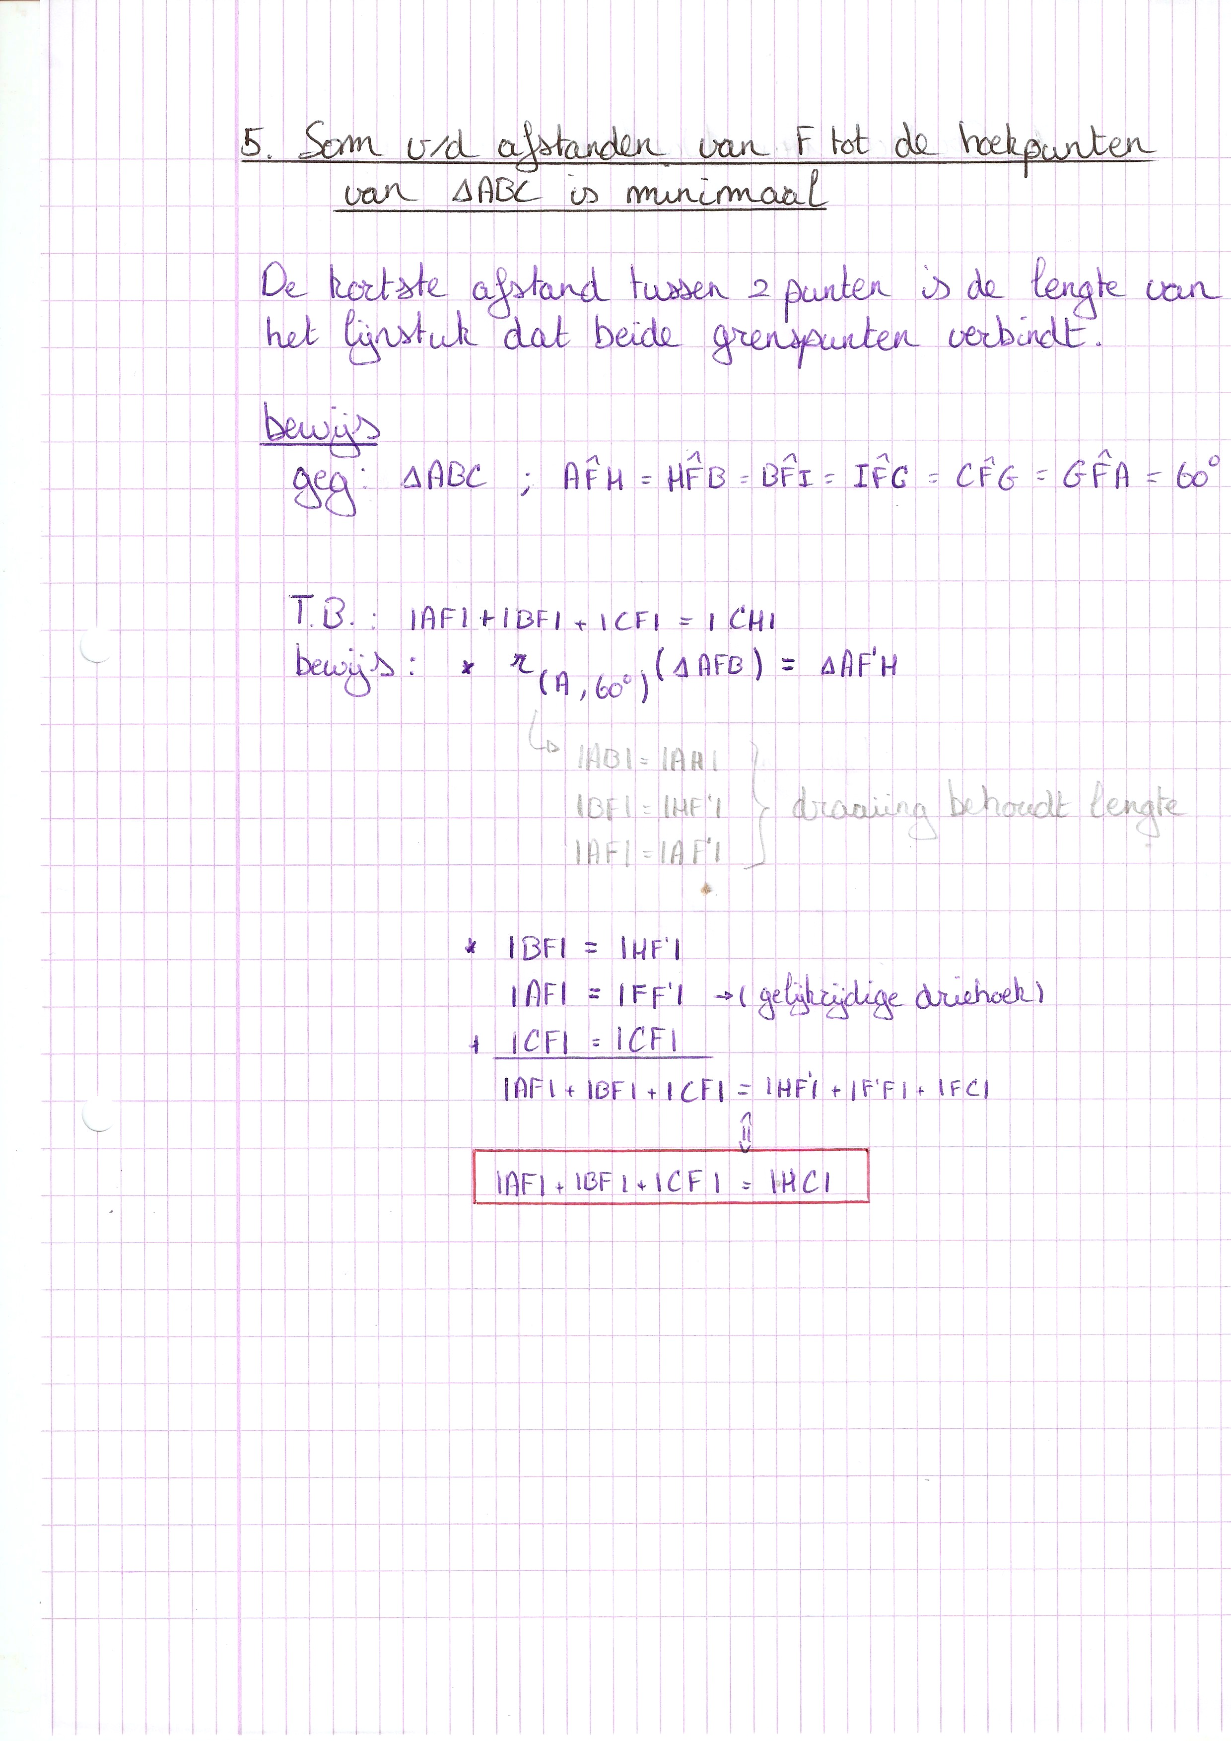 5. Som v/d afstanden van F tot de hoekpunten
van ΔABC is minimaal
De kortste afstand tussen 2 punten is de lengte van
het lijnstuk dat beide grenspunten verbindt.
bewijs
geg: ΔABC ; AF̂H = HF̂B = BF̂I = IF̂C = CF̂G = GF̂A = 60°
T.B.: |AF|+|BF|+|CF| = |CH|
bewijs: * r(A,60°)(ΔAFB) = ΔAF'H
↳ |AB|=|AH|
|BF|=|HF'| } draaiing behoudt lengte
|AF|=|AF'|
* |BF| = |HF'|
|AF| = |FF'| → (gelijkzijdige driehoek)
+ |CF| = |CF|
|AF|+|BF|+|CF| = |HF'|+|F'F|+|FC|
⇕
|AF|+|BF|+|CF| = |HC|